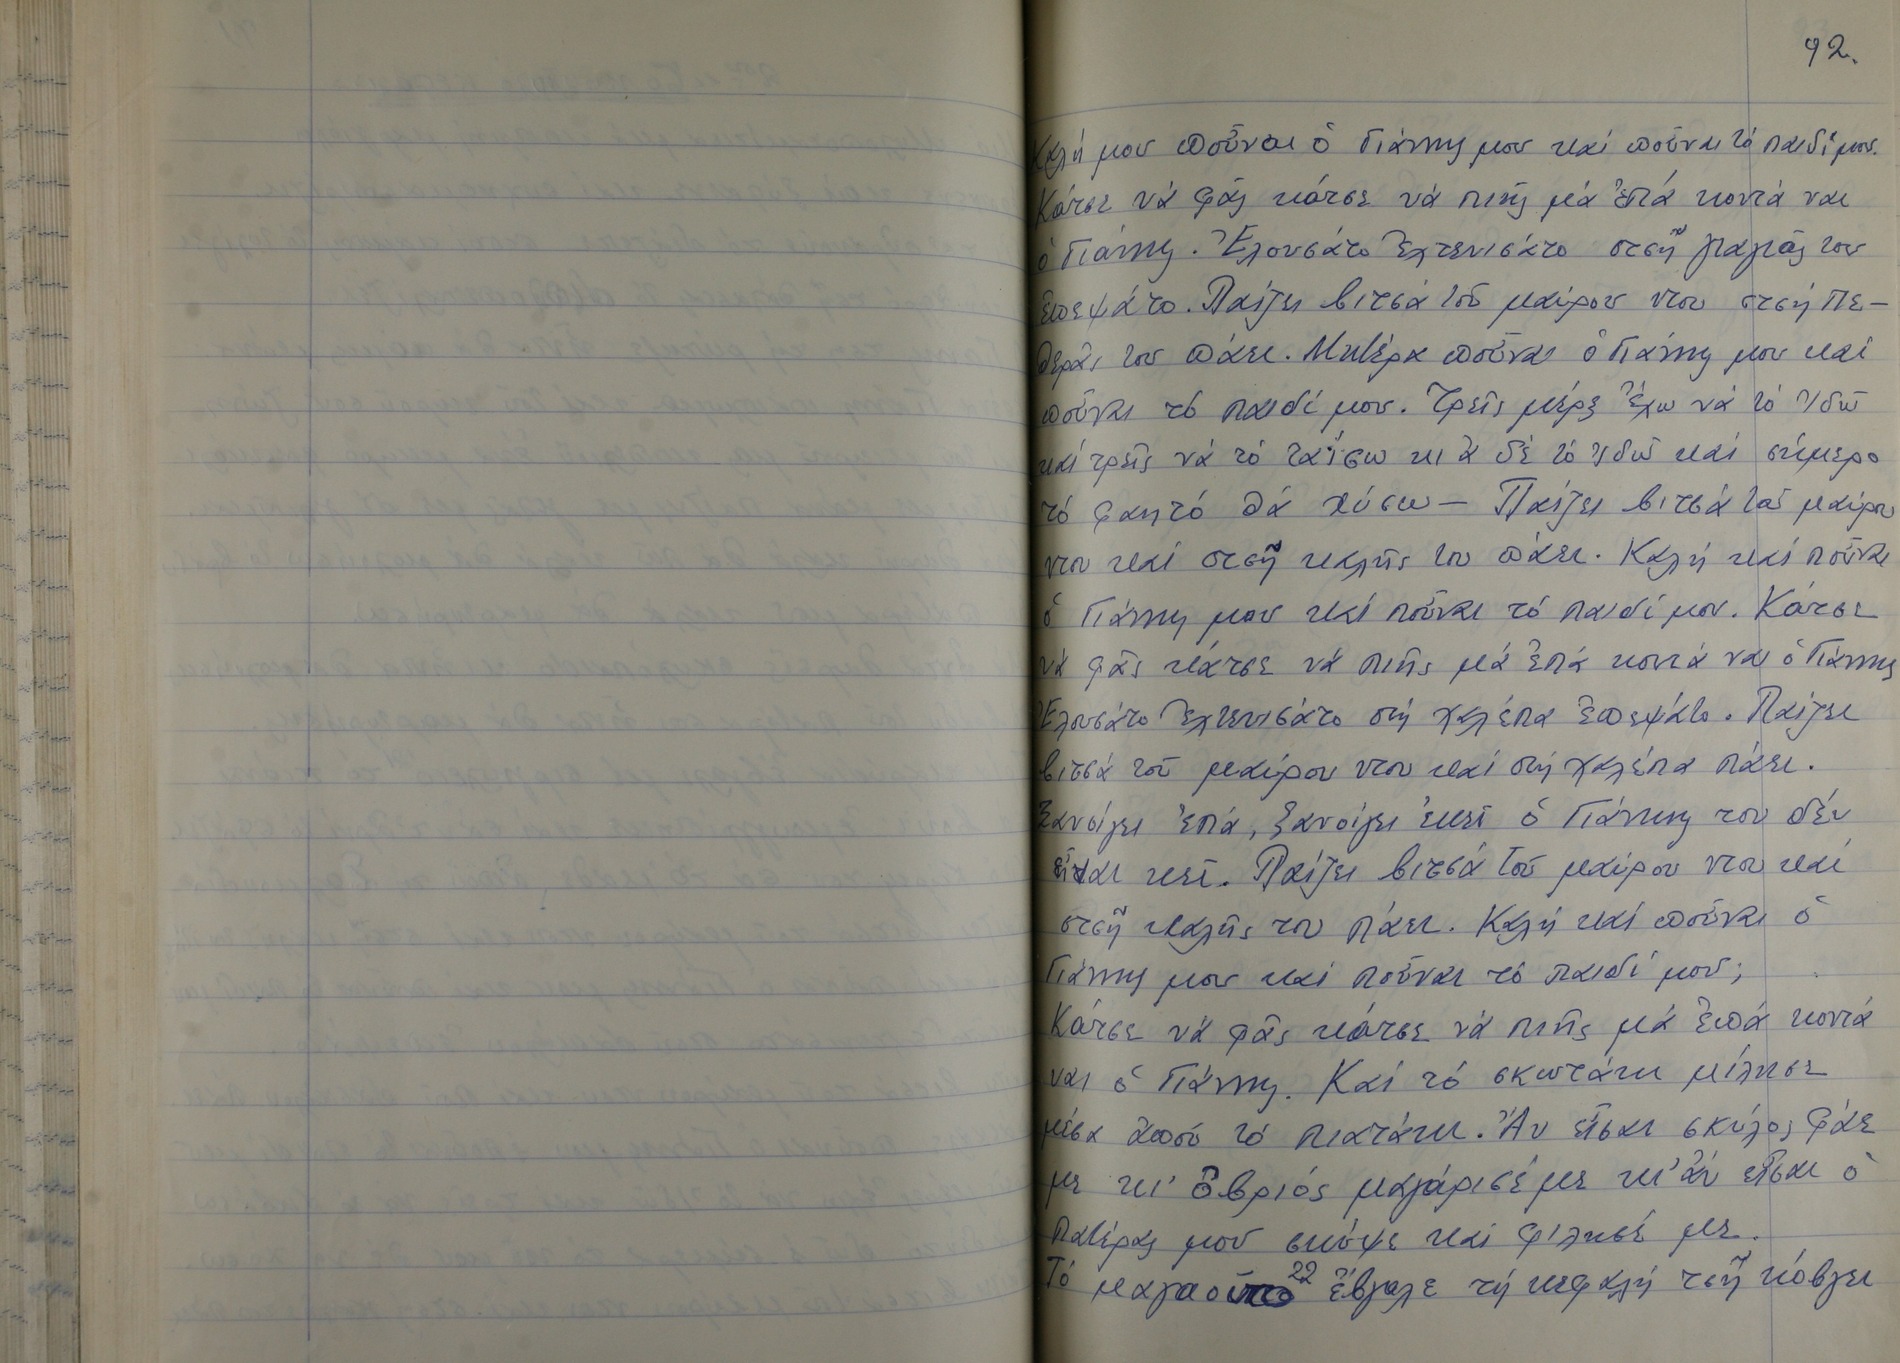 92.
Καλή μου ποὖναι ὁ Γιάννης μου καί ποὖναι τό παιδί μου.
Κάτσε νά φᾶς κάτσε νά πιῆς μά ἐπά κοντά ναι
ὁ Γιάννης. Ἐλουσάτο ἐχτενισάτο στσῆ γιαγιᾶς του
ἔπεψάτο. Παίζει βιτσά τοῦ μαύρου ντου στσῆ πε-
θερᾶς του πάει. Μητέρα ποὖναι ὁ Γιάννης μου καί
ποὖναι τό παιδί μου. Τρεῖς μέρες ἔχω νά τό ἰδῶ
καί τρεῖς νά τό ταΐσω κι ἄ δέ τό ἰδῶ καί σήμερο
τό φαητό θά χύσω — Παίζει βιτσά τοῦ μαύρου
ντου καί στσῆ καλῆς του πάει. Καλή καί ποὖναι
ὁ Γιάννης μου καί ποὖναι τό παιδί μου. Κάτσε
νά φᾶς κάτσε νά πιῆς μά ἐπά κοντά ναι ὁ Γιάννης
Ἐλουσάτο ἐχτενισάτο στή χαλέπα ἔπεψάτο. Παίζει
βιτσά τοῦ μαύρου ντου καί στή χαλέπα πάει.
Ξανοίγει ἐπά, ξανοίγει ἐκεῖ ὁ Γιάννης του δέν
εἶναι κεῖ. Παίζει βιτσά τοῦ μαύρου ντου καί
στσῆ καλῆς του πάει. Καλή καί ποὖναι ὁ
Γιάννης μου καί ποὖναι τό παιδί μου;
Κάτσε νά φᾶς κάτσε νά πιῆς μά ἐπά κοντά
ναι ὁ Γιάννης. Καί τό σκωτάκι μίλησε
μέσα ἀπού τό πιατάκι. Ἄν εἶσαι σκύλος φάε
με κι' ὀβριός μαγάρισέ με κι' ἄν εἶσαι ὁ
πατέρας μου σκύψε καί φίλησέ με.
Τό 22 ἔβγαλε τή κεφαλή τσῆ κόβγει